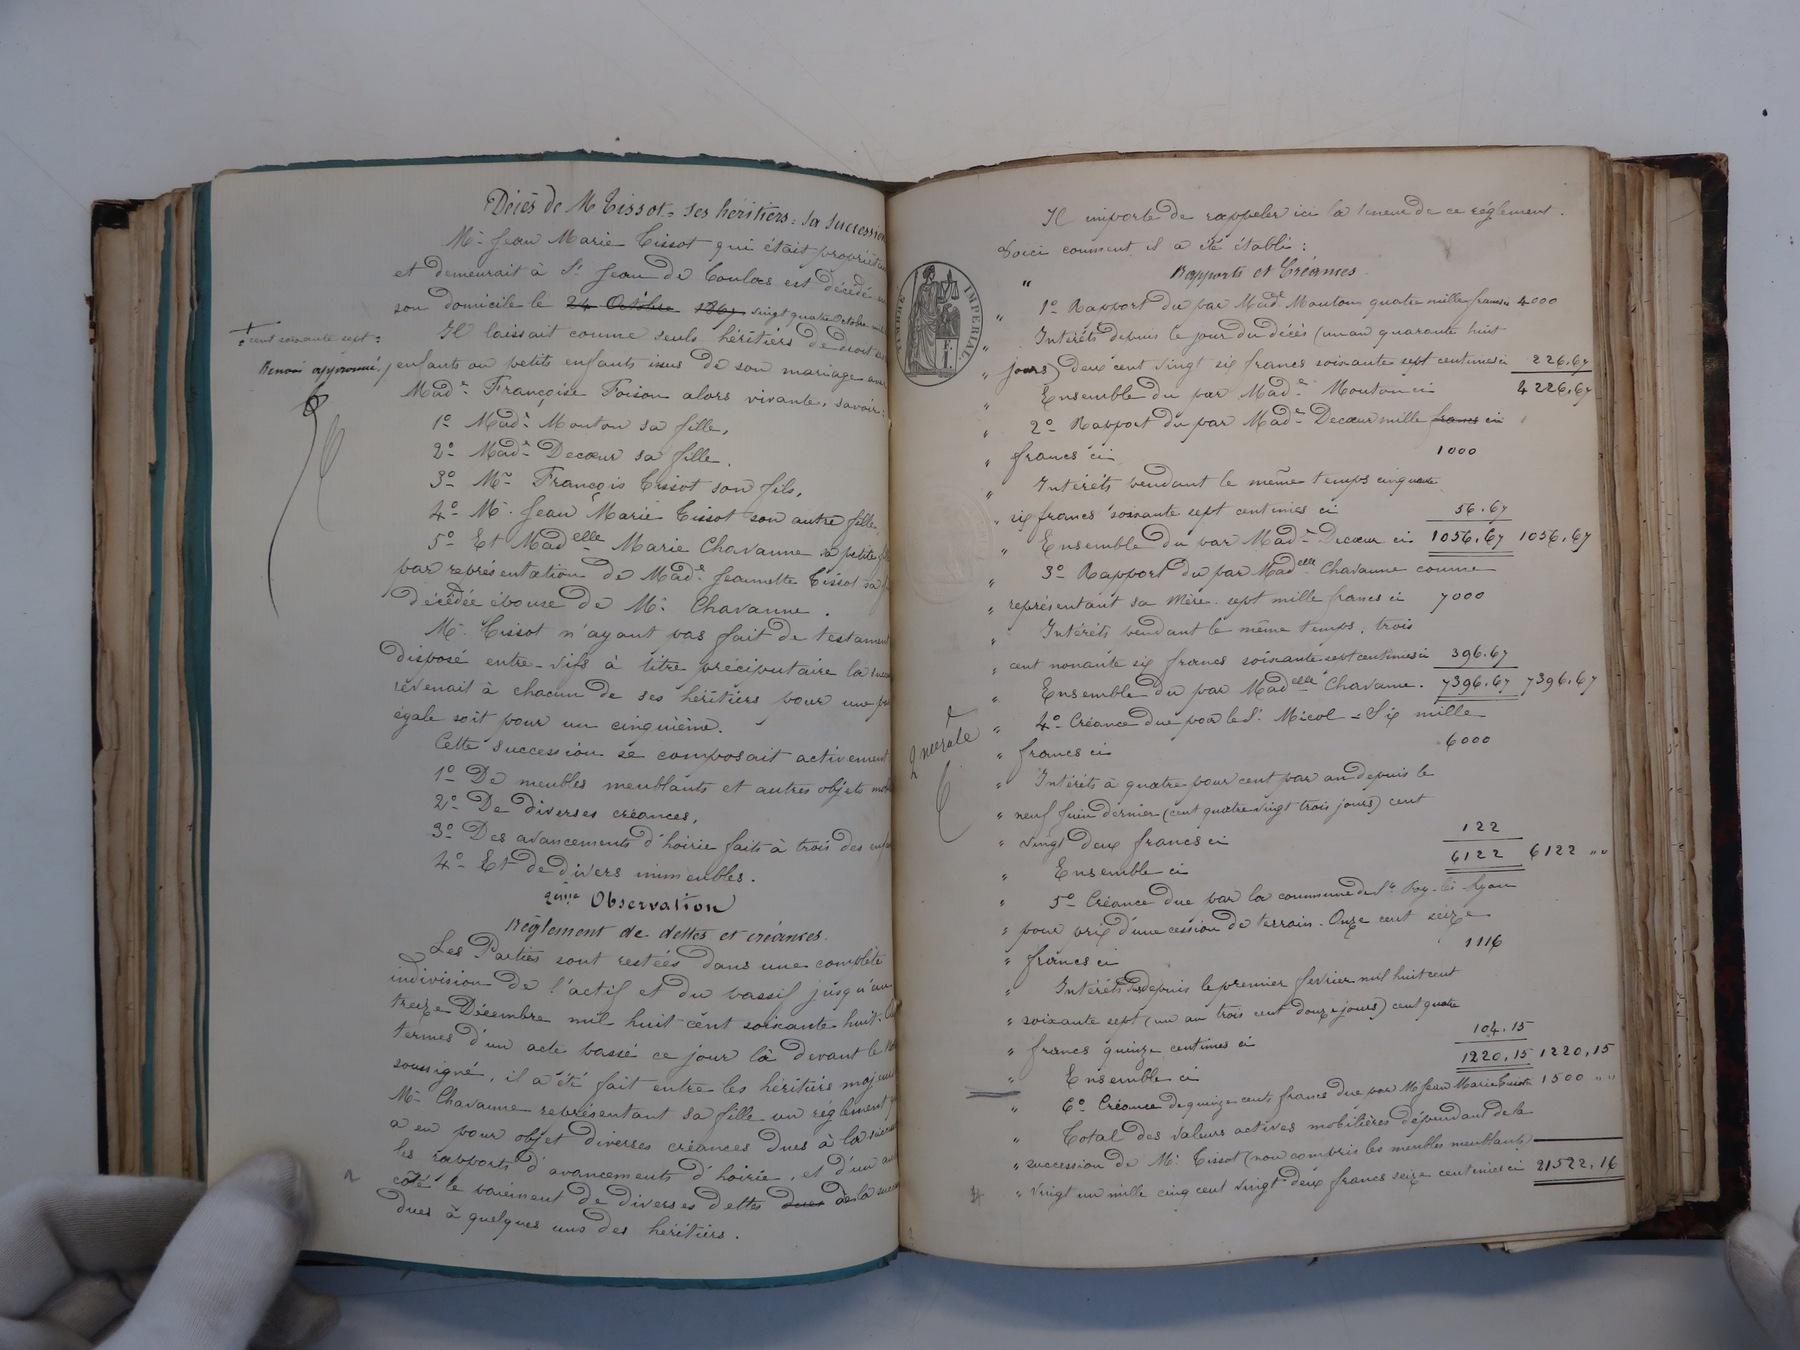 Décès de Mr Tissot = ses héritiers = sa succession
Mr Jean Marie Tissot qui était propriétaire
et demeurait à St Jean de Toulas est décédé en
son domicile le 24 Octobre 1867 vingt quatre Octobre mil
† cent soixante sept =
Renvoi approuvé
Il laissait comme seuls héritiers de droit ses
enfants ou petits enfants issus de son mariage avec
Made Françoise Foison alors vivante, savoir :
1º Made Mouton sa fille,
2º Made Decœur sa fille.
3º Mr François Tissot son fils,
4º Mr Jean Marie Tissot son autre fille
5º Et Madelle Marie Chavanne sa petite fille
par représentation de Made Jeannette Tissot sa
décédée épouse de Mr Chavanne.
Mr Tissot n'ayant pas fait de testament
disposé entre-vifs à titre préciputaire la
revenait à chacun de ses héritiers pour une
égale soit pour un cinquième.
Cette succession se composait activement
1º De meubles meublants et autres objets
2º De diverses créances,
3º Des avancements d'hoirie faits à trois des
4º Et de divers immeubles.
2ème Observation
Règlement de dettes et créances.
Les Parties sont restées dans une complète
indivision de l'actif et du passif jusqu'au
treize Décembre mil huit cent soixante huit.
termes d'un acte passé ce jour là devant le
soussigné, il a été fait entre les héritiers majeurs
Mr Chavanne représentant sa fille un règlement
a eu pour objet diverses créances dues à la
les rapports d'avancements d'hoirie, et d'un
coté le paiement de diverses dettes dues de la
dues à quelques uns des héritiers.
Il importe de rappeler ici la teneur de ce règlement.
Voici comment il a été établi :
" Rapports et Créances
" 1º Rapport du par Made Mouton quatre mille francs ci 4000
" Intérêts depuis le jour du décès (un an quarante huit
" jours) deux cent vingt six francs soixante sept centimes ci 226,67
" Ensemble du par Made Mouton ci 4226,67
" 2º Rapport du par Made Decœur mille francs ci
" francs ci 1000
" Intérêts pendant le même temps cinquante
" six francs soixante sept centimes ci 56.67
" Ensemble du par Made Decœur ci 1056,67 1056,67
" 3º Rapport du par Madelle Chavanne comme
" représentant sa Mère. sept mille francs ci 7000
" Intérêts pendant le même temps, trois
" cent nonante six francs soixante sept centimes ci 396.67
" Ensemble du par Madelle Chavanne. 7396,67 7396,67
" 4º Créance due par le Sr Micol = Six mille
" francs ci 6000
" Intérêts à quatre pour cent par an depuis le
" neuf Juin dernier (cent quatre vingt trois jours) cent
" vingt deux francs ci 122
" Ensemble ci 6122 6122 ""
" 5º Créance due par la commune de Ste Foy-lès-Lyon
" pour prix d'une cession de terrain. Onze cent seize
" francs ci 1116
" Intérêts depuis le premier février mil huit cent
" soixante sept (un an trois cent douze jours) cent quatre
" francs quinze centimes ci 104.15
" Ensemble ci 1220,15 1220,15
" 6º Créance de quinze cents francs due par M Jean Marie Tissot 1500 ""
" Total des valeurs actives mobilières dépendant de la
" succession de Mr Tissot (non compris les meubles meublants
" vingt un mille cinq cent vingt deux francs seize centimes ci 21522,16
TIMBRE IMPERIAL